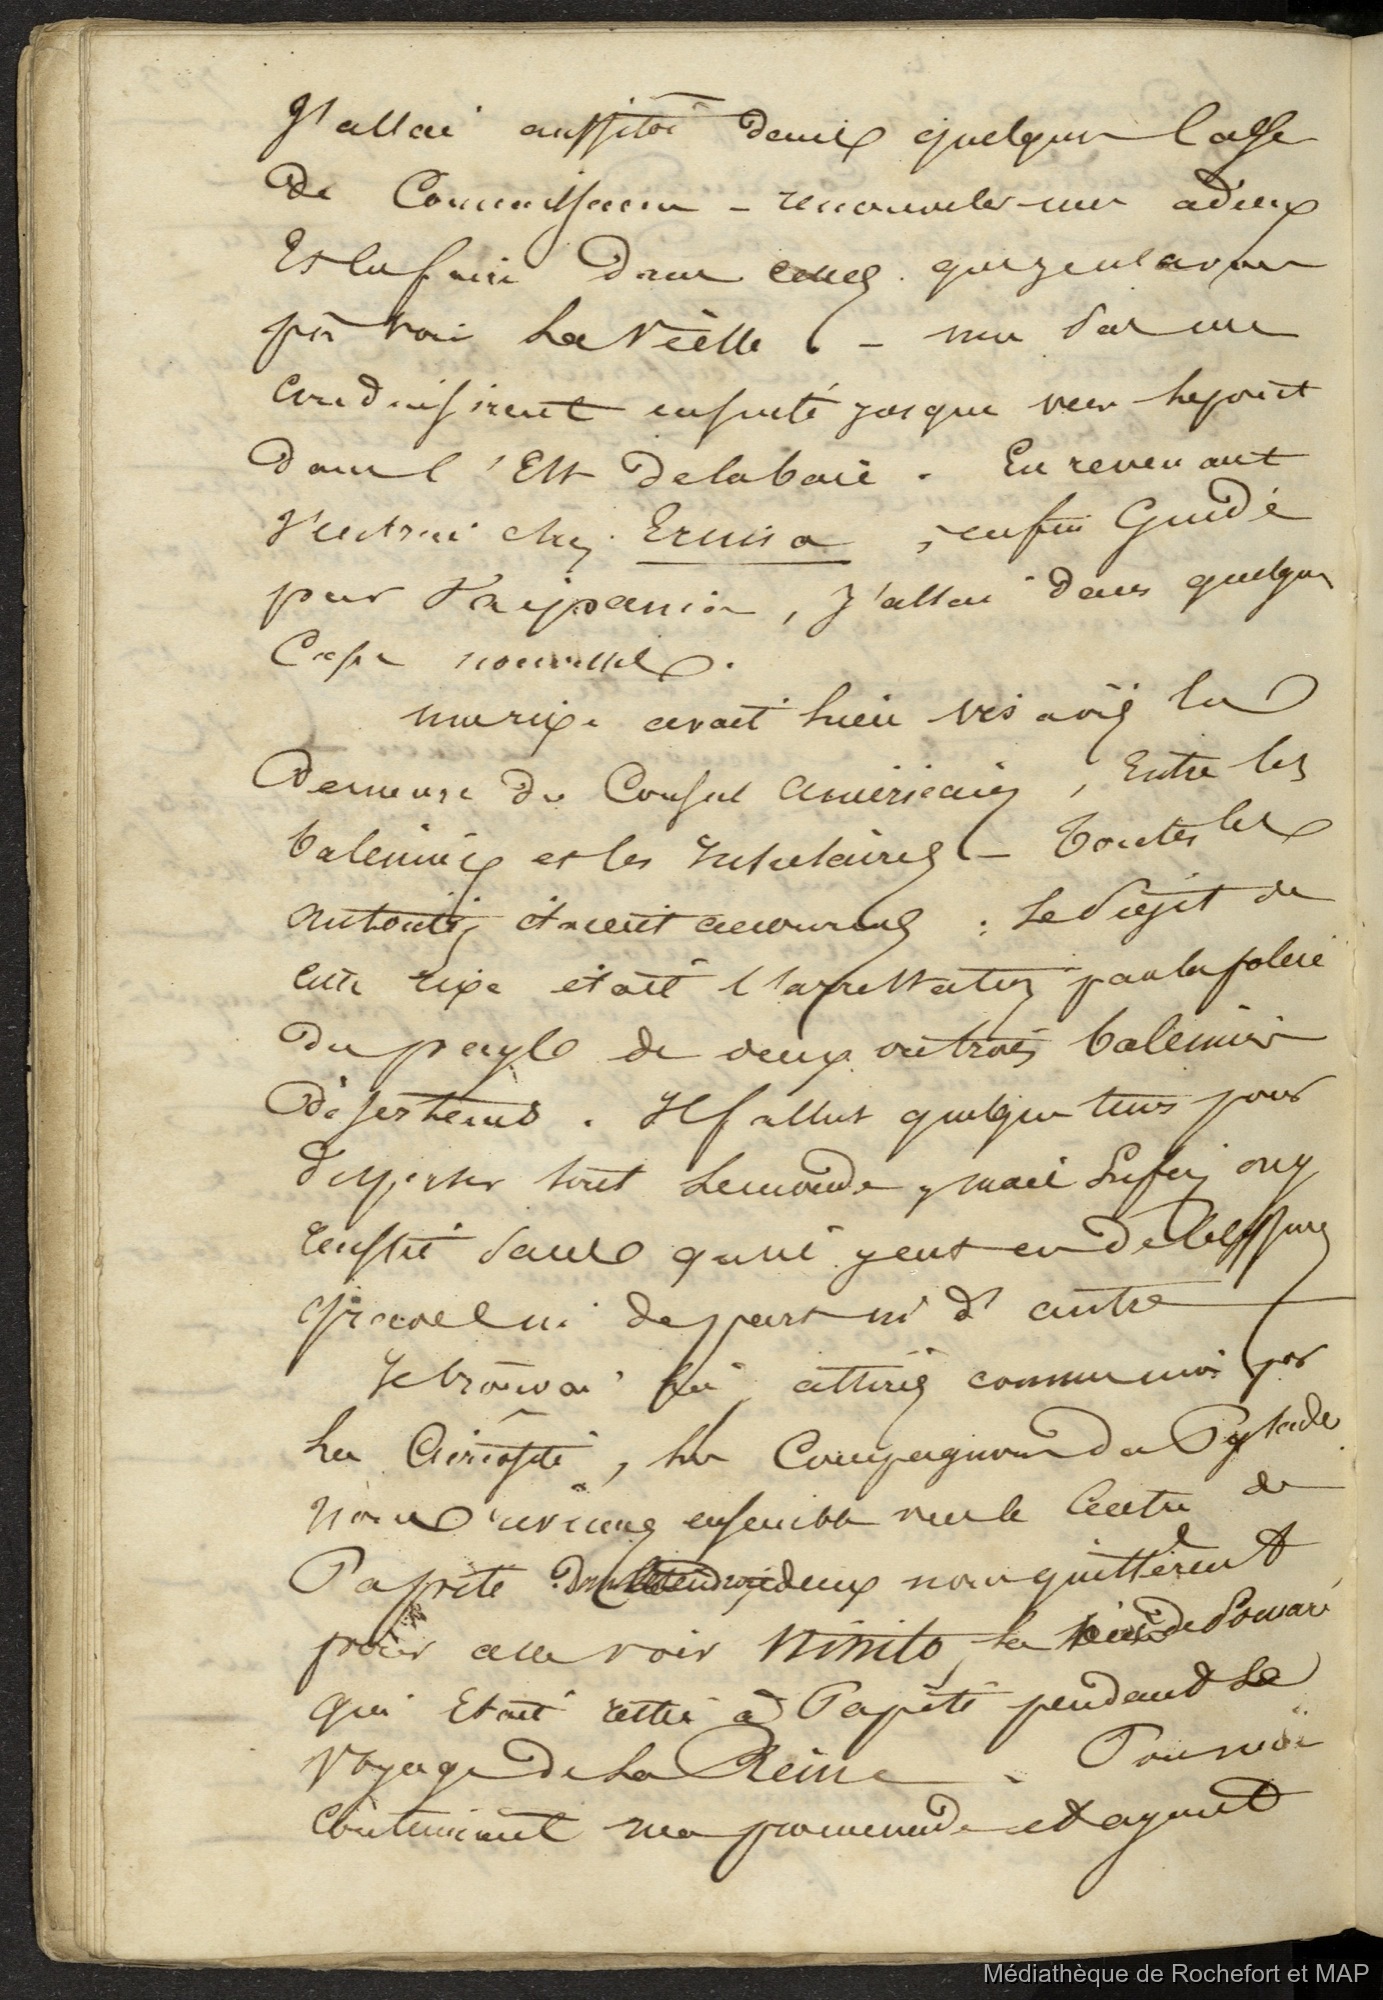 J'allai aussitôt dans quelques cases
de Connaissance – renouveler mes adieux
Et les faire dans celles que je n'avais
pas vais La Veille . – me
conduisirent ensuite jusque vers le point
dans l'Est de la baie . En revenant
J'entrai chez Ermisa , enfin Guidé
par , J'allai dans quelques
Cases nouvelles .
une rixe avait lieu vis à vis la
Demeure du Consul américain , Entre les
baleiniers et les – toutes les
autorités étaient accourues : Le Sujet de
cette rixe était l'arrestation par la police
du pays de deux ou trois baleiniers
déserteurs . Il fallut quelques tems pour
disperser tout le monde , mais Enfin on y
reussit sans qu'il y eut eu de blessures
graves ni de part ni d'autre
Je trouvai là, attirés comme moi par
La Curiosité , les Compagnons du Pylade
Nous revinmes ensemble vers le Centre de
Papéïte deux nous quittèrent
pour aller voir Ninito, la de Pomaré
qui Etait restée à Papéïti pendant Le
Voyage de La Reine . Pour moi
Continuant ma promenade et ayant
Médiathèque de Rochefort et MAP